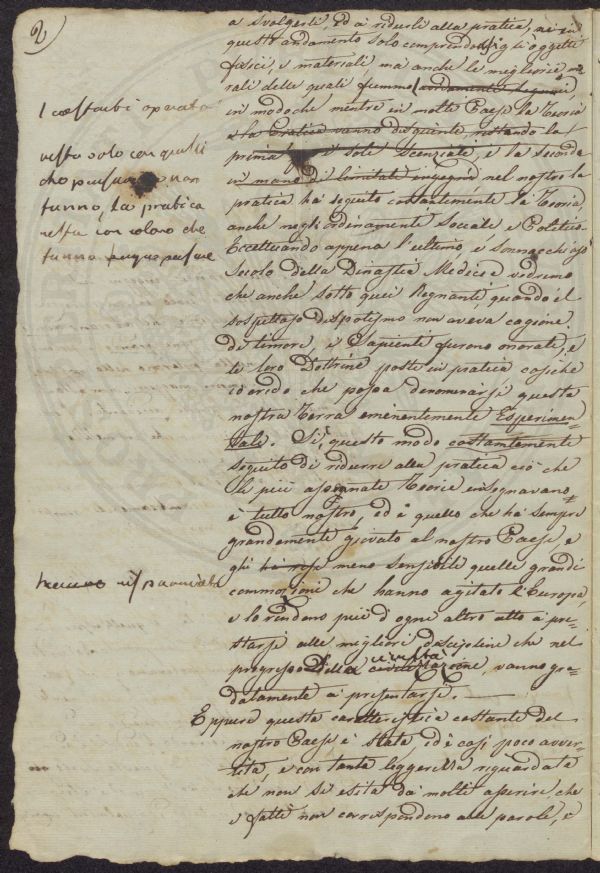 2
a svolgersi, ed a ridursi alla pratica, nè in
questo andamento solo comprendo gli oggetti
fisici, e materiali ma anche le migliorie mo
rali delle quali fummo
in modo che mentre in molti Paesi la Teoria
e la Pratica vanno disgiunte, restando la
prima soli Scienziati, e la seconda
in mano di limitati ingegni nel nostro la
pratica ha seguito costantemente la Teoria
anche negli ordinamenti Sociali e Politici.
Eccettuando appena l'ultimo e sonnacchioso
Secolo della Dinastia Medicea vedremo
che anche sotto quei Regnanti quando il
sospettoso dispotismo non aveva cagione
di timore, i Sapienti furono onorati, e
le loro Dottrine poste in pratica cosiche
io credo che possa denominarsi questa
nostra Terra eminentemente Esperimen-
tale. Sì, questo modo costantemente
seguito di ridurre alla pratica ciò che
le più assennate Teorie insegnavano
è tutto nostro, ed è quello che ha sempre
grandemente giovato al nostro Paese e
gli ha reso meno sensibile quelle grandi
commozioni che hanno agitato l'Europa,
e lo rendono più d'ogni altro atto a pre-
starsi alle migliori discipline che nel
progresso della civiltà civilizzazione, vanno gra-
datamente a presentarsi. —
Eppure questa caratteristica costante del
nostro Paese è stata, ed è così poco avver-
tita, e con tanta leggerezza riguardata
che non si esita da molti asserire che
i fatti non corrispondono alle parole, e
resta solo con quelli
che pensano e non
fanno, la pratica
resta con coloro che
fanno senza pensare